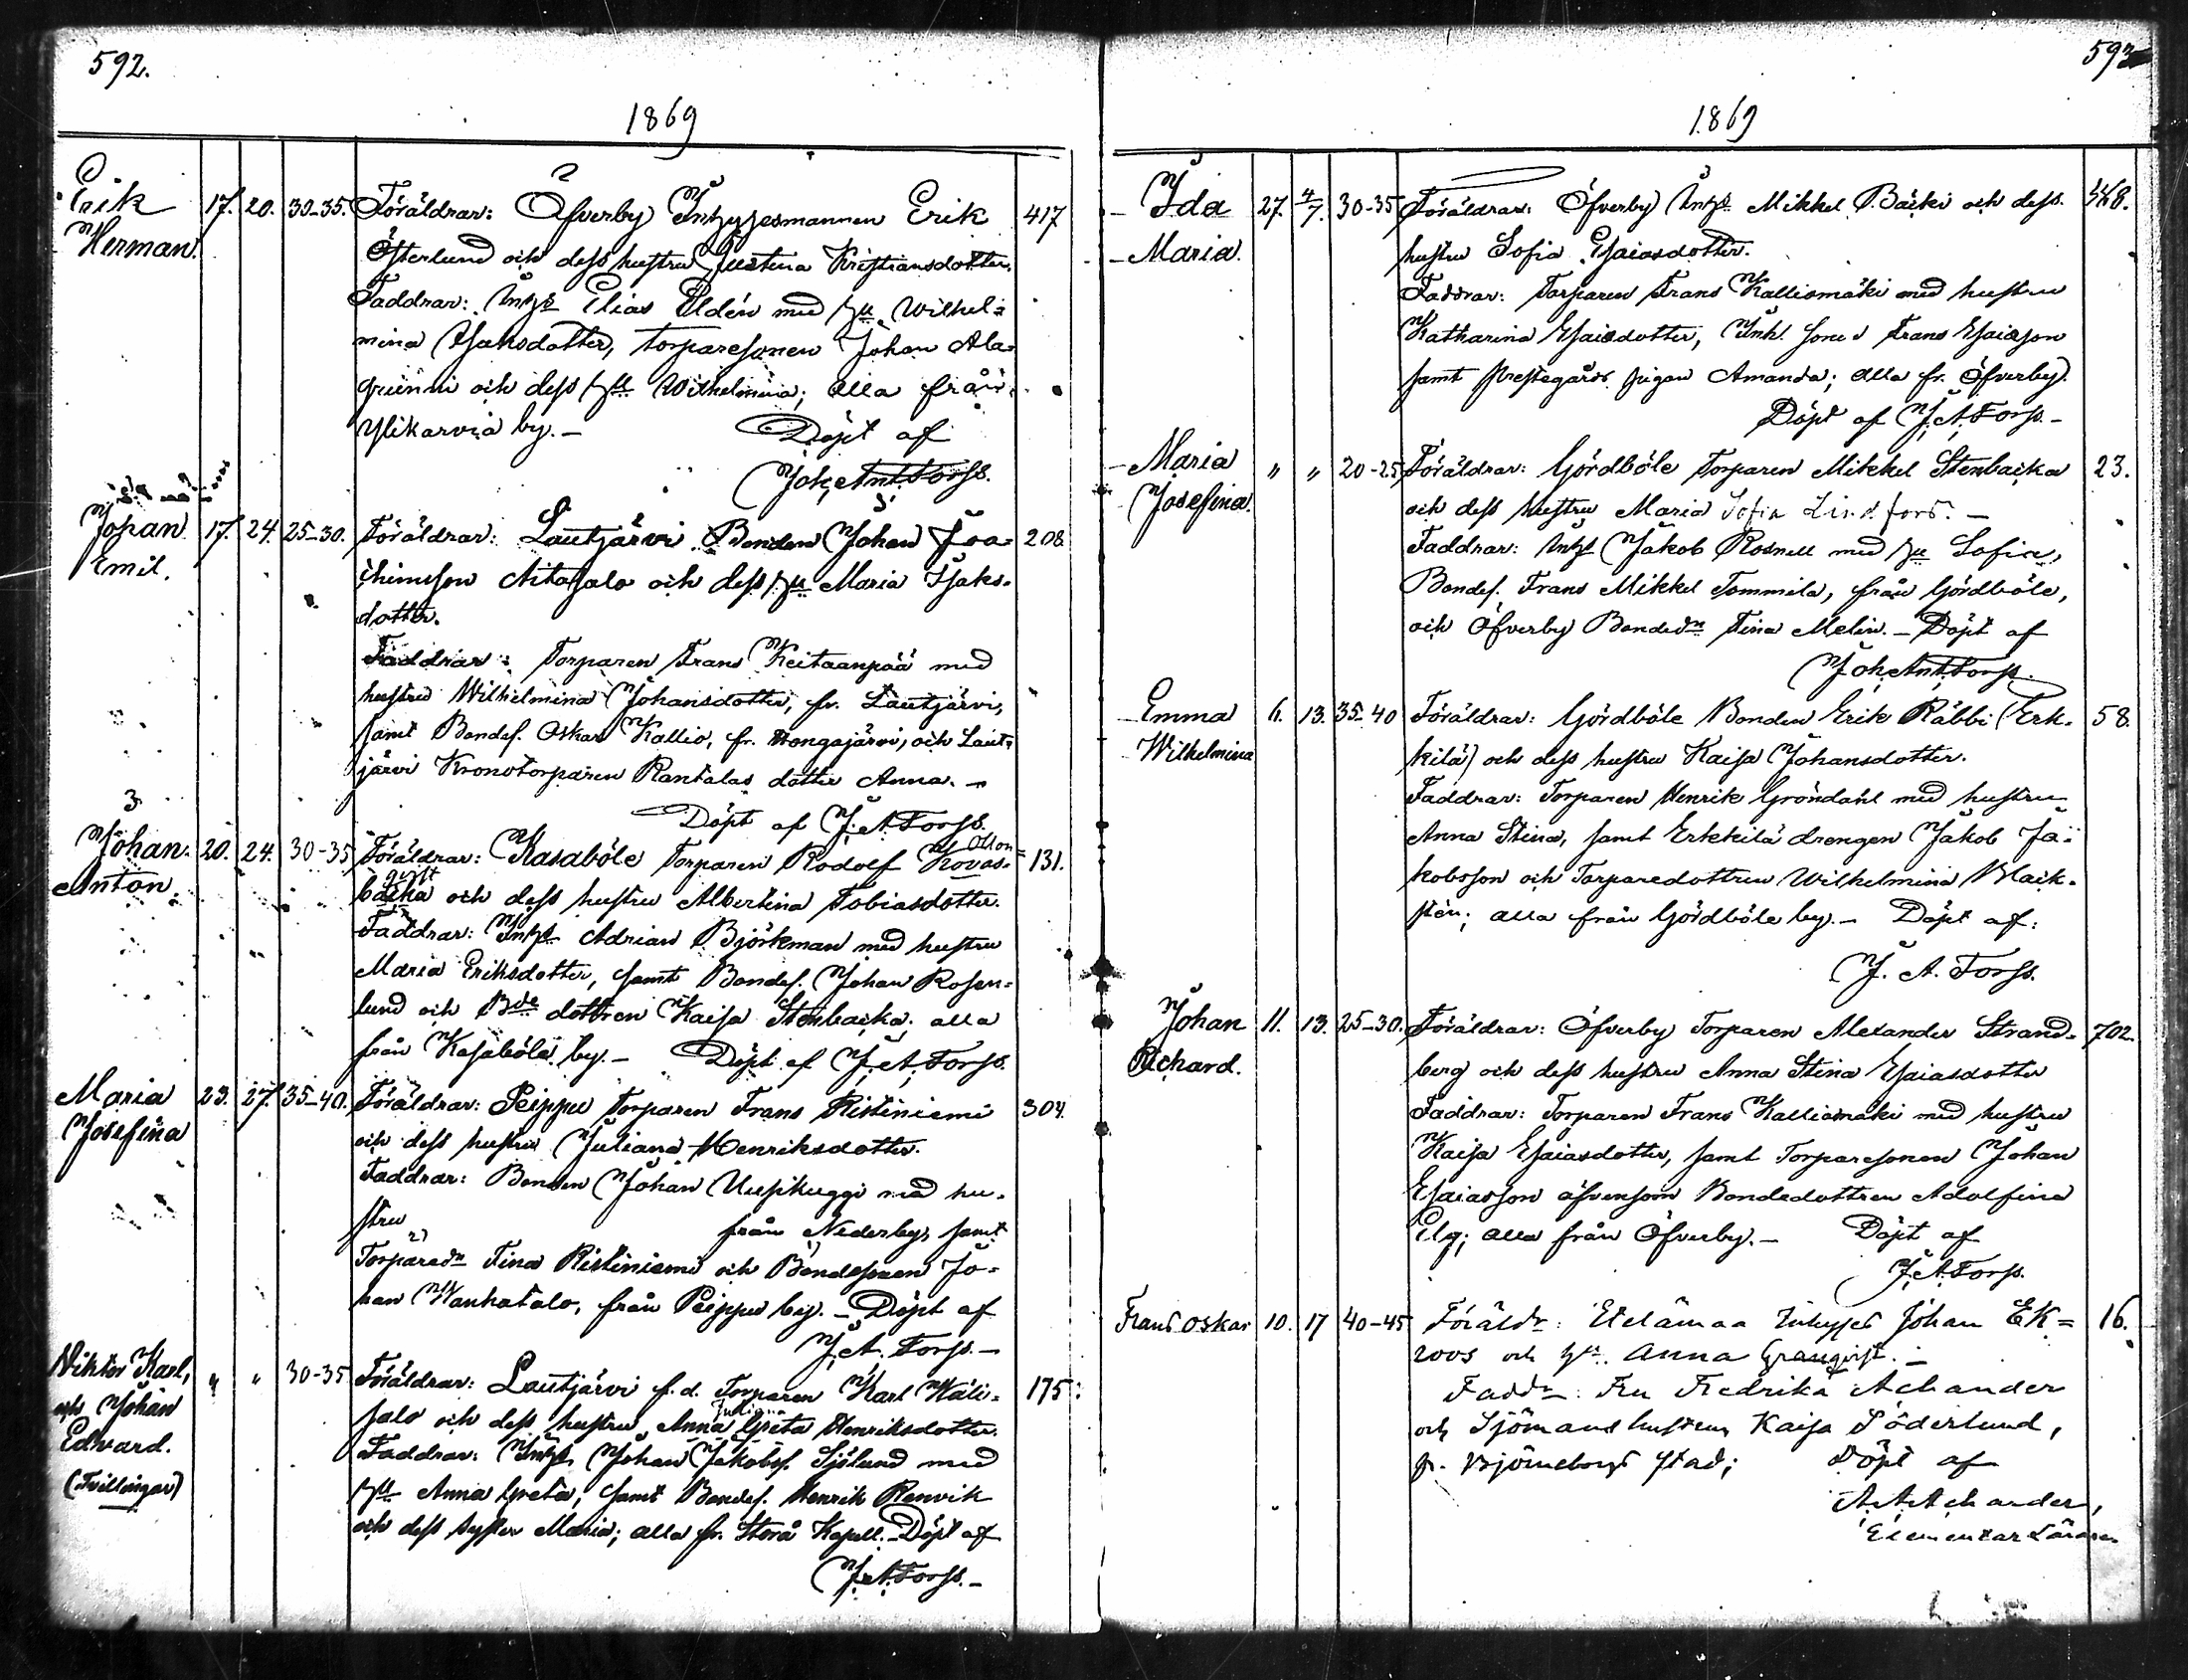 592.
1869
Erik Herman. 17. 20. 30-35. Föräldrar: Öfverby Inhysesmannen Erik 417
Österlund och dess hustru Justina Kristiansdotter.
Faddrar: Inhs Elias Eldén med hu Wilhel-
mina Isaksdotter, torparesonen Johan Ala-
grünni och dess hu Wilhelmina; alla från
Ylikarvia by. — Döpt af
Joh. Ant. Forss.
Johan Emil. 17. 24. 25-30. Föräldrar: Lautjärvi Bonden Johan Joa- 208
chimsson Aitasalo och dess hu Maria Isaks-
dotter.
Faddrar: Torparen Frans Keitaanpää med
hustru Wilhelmina Johansdotter, fr. Lautjärvi,
samt Bondes. Oskar Kallio, fr. Hongajärvi, och Laut-
järvi Kronotorparen Rantalas dotter Anna. —
Döpt af J. A. Forss.
3
Johan Anton. 20. 24. 30-35 Föräldrar: Kasaböle Torparen Rodolf Kovas- 131.
backa och dess hustru Albertina Tobiasdotter.
Faddrar: Inhs Adrian Björkman med hustru
Maria Eriksdotter, samt Bondes. Johan Rosen-
lund och Bde dottren Kaisa Stenbacka. alla
från Kasaböle by. — Döpt af J. A. Forss.
Maria Josefina 23. 27. 35-40. Föräldrar: Peippu Torparen Frans Ristiniemi 304.
och dess hustru Juliana Henriksdotter.
Faddrar: Bonden Johan Uusikuggi med hu-
stru från Nederby, samt
Torpared:n Fina Ristiniemi och Bondesonen Jo-
han Wanhatalo, från Peippu by. — Döpt af
J. A. Forss. —
Viktor Karl, och Johan Edvard. (Tvillingar) " " 30-35 Föräldrar: Lautjärvi f. d. Torparen Karl Wäli- 175
salo och dess hustru Anna Juliana Greta Henriksdotter.
Faddrar: Inhs Johan Jakobss. Sjölund med
hu Anna Greta, samt Bondes. Henrik Renvik
och dess syster Maria; alla fr. Storå Kapell. Döpt af
J. A. Forss. —
593
1869
Ida Maria. 27. 4/7. 30-35 Föräldrar: Öfverby Inhs Mikkel Bäcki och dess 468.
hustru Sofia Esaiasdotter.
Faddrar: Torparen Frans Kalliomäki med hustru
Katharina Esaiasdotter, Inh. sonen Frans Esaiasson
samt Prestegårds pigan Amanda; alla fr. Öfverby.
Döpt af J. A. Forss. —
Maria Josefina. " " 20-25 Föräldrar: Gördböle Torparen Mikkel Stenbacka 23.
och dess hustru Maria Sofia Lindfors. —
Faddrar: Inhs Jakob Rosnell med hu Sofia,
Bondes. Frans Mikkel Tommila, från Gördböle,
och Öfverby Bonded:n Fina Melin. — Döpt af
Joh. Ant. Forss.
Emma Wilhelmina 6. 13. 35-40 Föräldrar: Gördböle Bonden Erik Räbbi (Erk- 58.
kilä) och dess hustru Kaisa Johansdotter.
Faddrar: Torparen Henrik Gröndahl med hustru
Anna Stina, samt Erkkilä drengen Jakob Ja-
kobsson och Torparedottren Wilhelmina Black-
stén; alla från Gördböle by. — Döpt af:
J. A. Forss.
Johan Richard. 11. 13. 25-30. Föräldrar: Öfverby Torparen Alexander Strand- 702.
berg och dess hustru Anna Stina Esaiasdotter
Faddrar: Torparen Frans Kalliomäki med hustru
Kaisa Esaiasdotter, samt Torparesonen Johan
Esaiasson äfvensom Bondedottren Adolfina
Elg; alla från Öfverby. — Döpt af
J. A. Forss.
Frans Oskar 10. 17 40-45 Föräldr: Etelämaa Inhyses Johan Ek= 16.
roos och hu. Anna Granqvist. —
Faddr: Fru Fredrika Achander
och Sjömans hustrun Kaisa Söderlund,
fr. Björneborgs stad; Döpt af
A. A. Achander,
Elementar Läraren